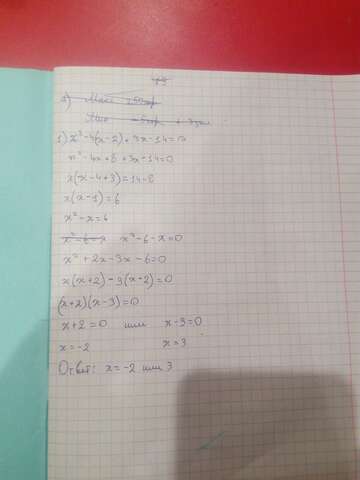 1) x² - 4(x - 2) + 3x - 14 = 0
x² - 4x + 8 + 3x - 14 = 0
x(x - 4 + 3) = 14 - 8
x(x - 1) = 6
x² - x = 6
x² - 6 - x = 0
x² + 2x - 3x - 6 = 0
x(x + 2) - 3(x - 2) = 0
(x + 2)(x - 3) = 0
x + 2 = 0 или x - 3 = 0
x = -2 x = 3
Ответ: x = -2 или 3